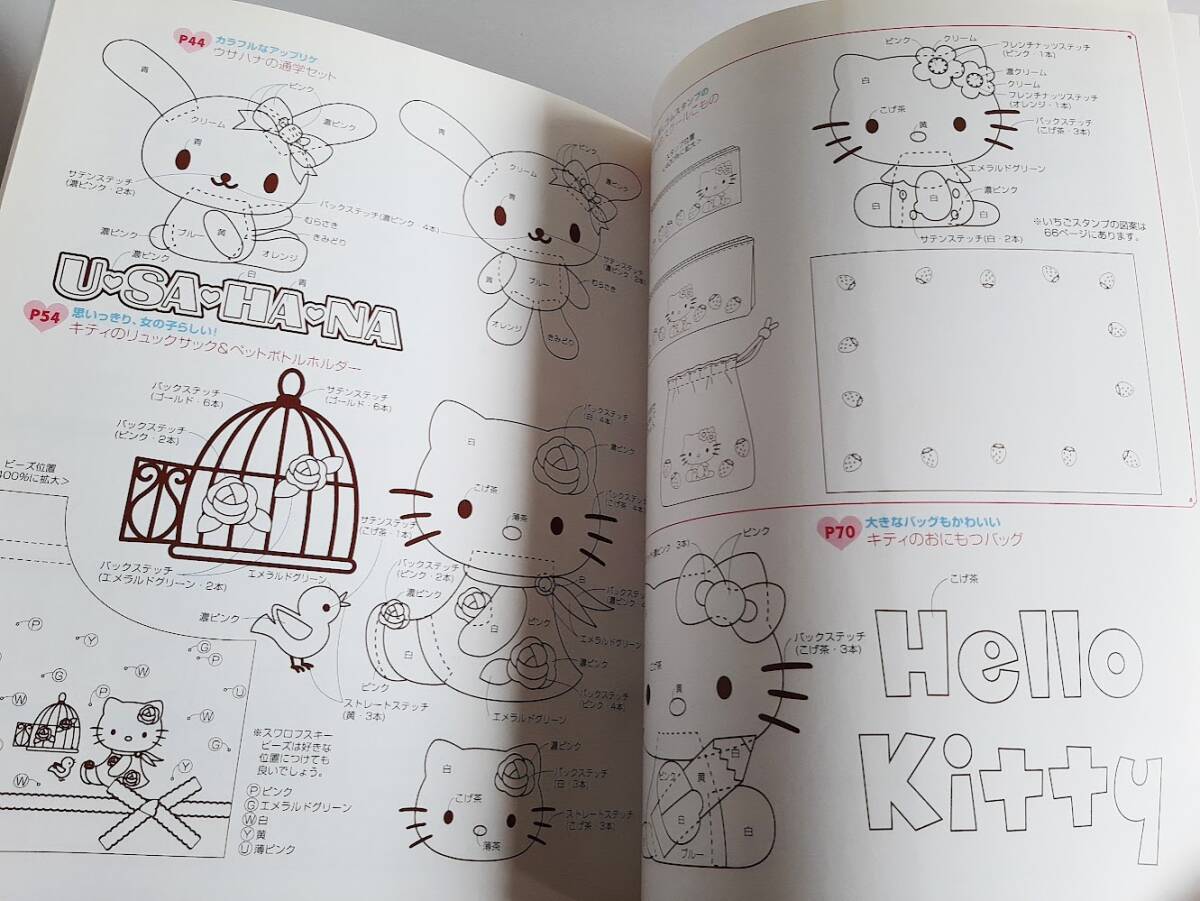 P44
カラフルなアップリケ
ウサハナの通学セット
青
ピンク
クリーム
濃ピンク
青
サテンステッチ
(濃ピンク・2本)
バックステッチ(濃ピンク・4本)
むらさき
きみどり
濃ピンク
ブルー
黄
オレンジ
濃ピンク
白
青
U♥SA♥HA♥NA
青
クリーム
ピンク
濃ピンク
青
サテンステッチ
むらさき
青
ブルー
オレンジ
きみどり
P54
思いっきり、女の子らしい!
キティのリュックサック&ペットボトルホルダー
バックステッチ
(ゴールド・6本)
サテンステッチ
(ゴールド・6本)
バックステッチ
(ピンク・2本)
ビーズ位置
400%に拡大>
サテンステッチ
(こげ茶・1本)
バックステッチ
(エメラルドグリーン・2本)
エメラルドグリーン
濃ピンク
ストレートステッチ
(黄・3本)
バックステッチ
(白・4本)
白
濃ピンク
こげ茶
薄茶
バックステッチ
(こげ茶・4本)
白
バックステッチ
(ピンク・2本)
濃ピンク
バックステッチ
(濃ピンク・4
白
ピンク
エメラルドグリーン
白
濃ピンク
ピンク
バックステッチ
(ピンク・4本)
エメラルドグリーン
P
Y
G
W
W
G
P
U
W
W
G
Y
※スワロフスキー
ビーズは好きな
位置につけても
良いでしょう。
Ⓟピンク
Ⓖエメラルドグリーン
Ⓦ白
Ⓨ黄
Ⓤ薄ピンク
白
濃ピンク
バックステッチ
(白・3本)
こげ茶
ストレートステッチ
(こげ茶・3本)
薄茶
スタンプ位置
400%に拡大>
ピンク
クリーム
フレンチナッツステッチ
(ピンク・1本)
白
濃クリーム
クリーム
フレンチナッツステッチ
(オレンジ・1本)
こげ茶
黄
バックステッチ
(こげ茶・3本)
エメラルドグリーン
濃ピンク
白
白
白
サテンステッチ(白・2本)
※いちごスタンプの図案は
66ページにあります。
P70
大きなバッグもかわいい
キティのおにもつバッグ
濃ピンク 3本)
ピンク
バックステッチ
(こげ茶・3本)
こげ茶
黄
白
ピンク
黄
白
白
ブルー
こげ茶
Hello
Kitty